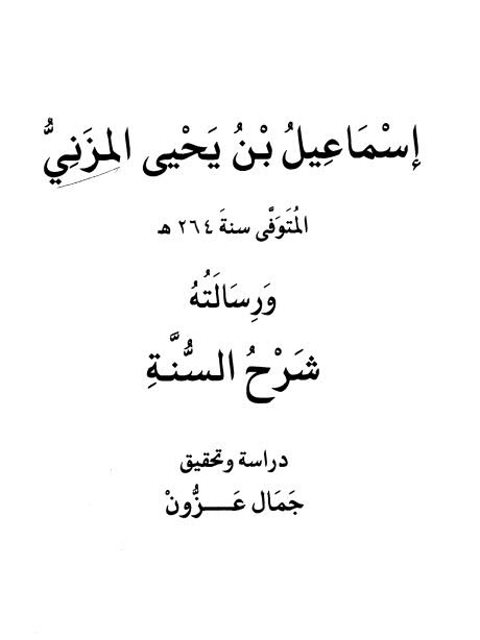 إسْمَاعِيلُ بْنُ يَحْيى المزَنِيُّ
المُتَوَفَّى سنةَ ٢٦٤ هـ
وَرِسَالَتُهُ
شَرْحُ السُّنَّةِ
دراسة وتحقيق
جَمَال عَــزُّونْ